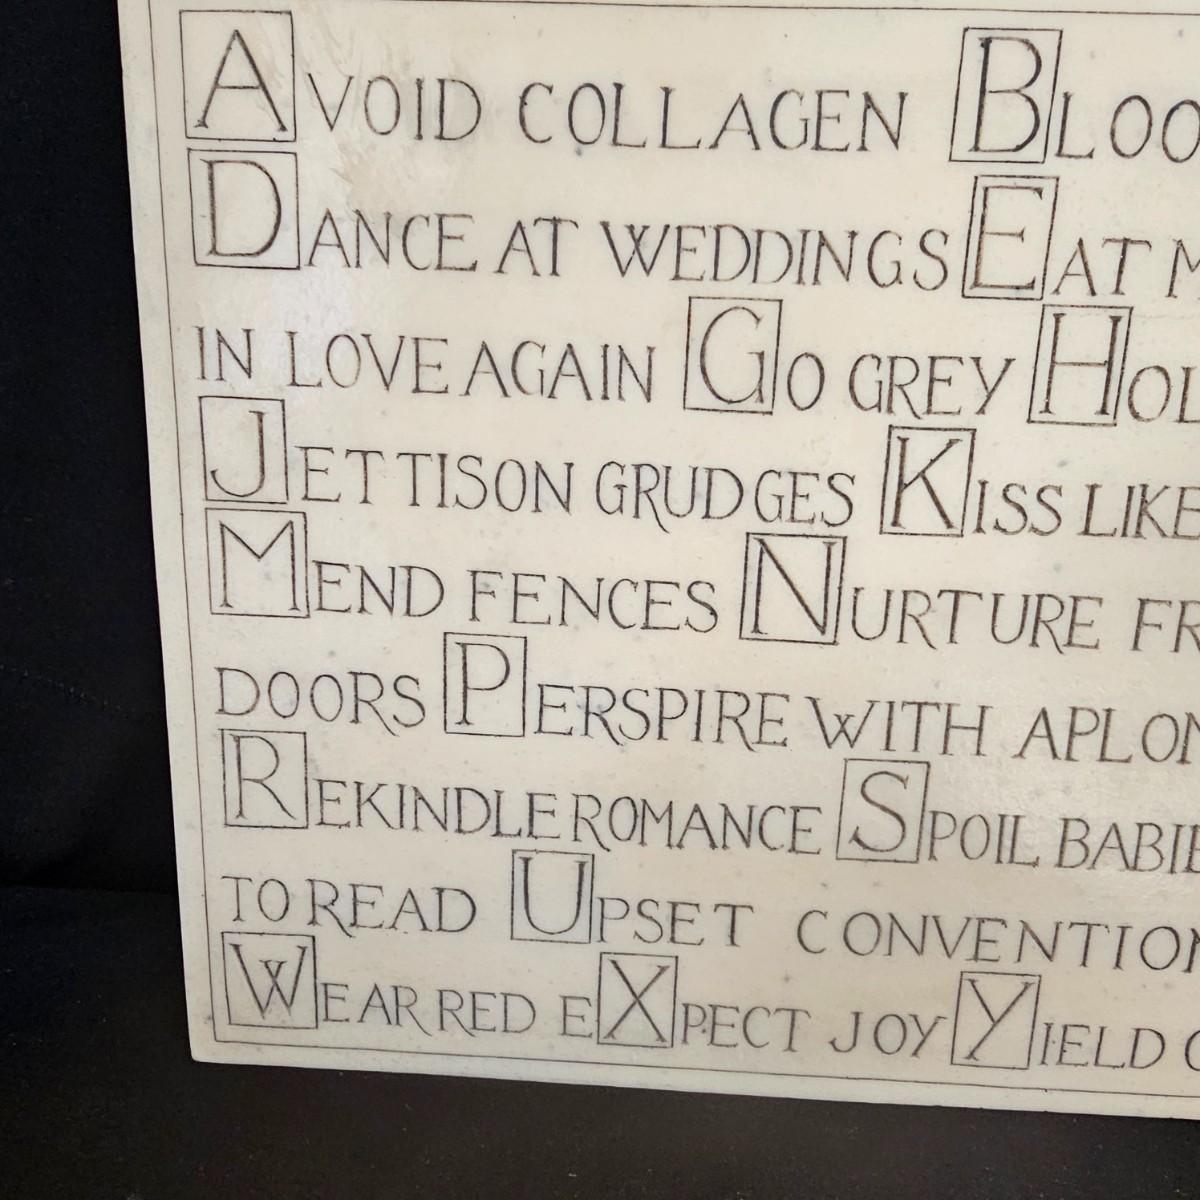 AVOID COLLAGEN BLOO
DANCE AT WEDDINGS EAT M
IN LOVE AGAIN GO GREY HOL
JETTISON GRUDGES KISS LIKE
MEND FENCES NURTURE FR
DOORS PERSPIRE WITH APLOM
REKINDLE ROMANCE SPOIL BABIE
TO READ UPSET CONVENTION
WEAR RED EXPECT JOY YIELD